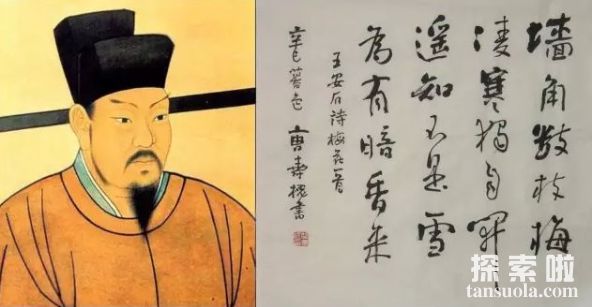 墙角数枝梅
凌寒獨自開
遥知不是雪
為有暗香来
王安石诗梅花一首
辛巳
書
探索啦
tansuola.com